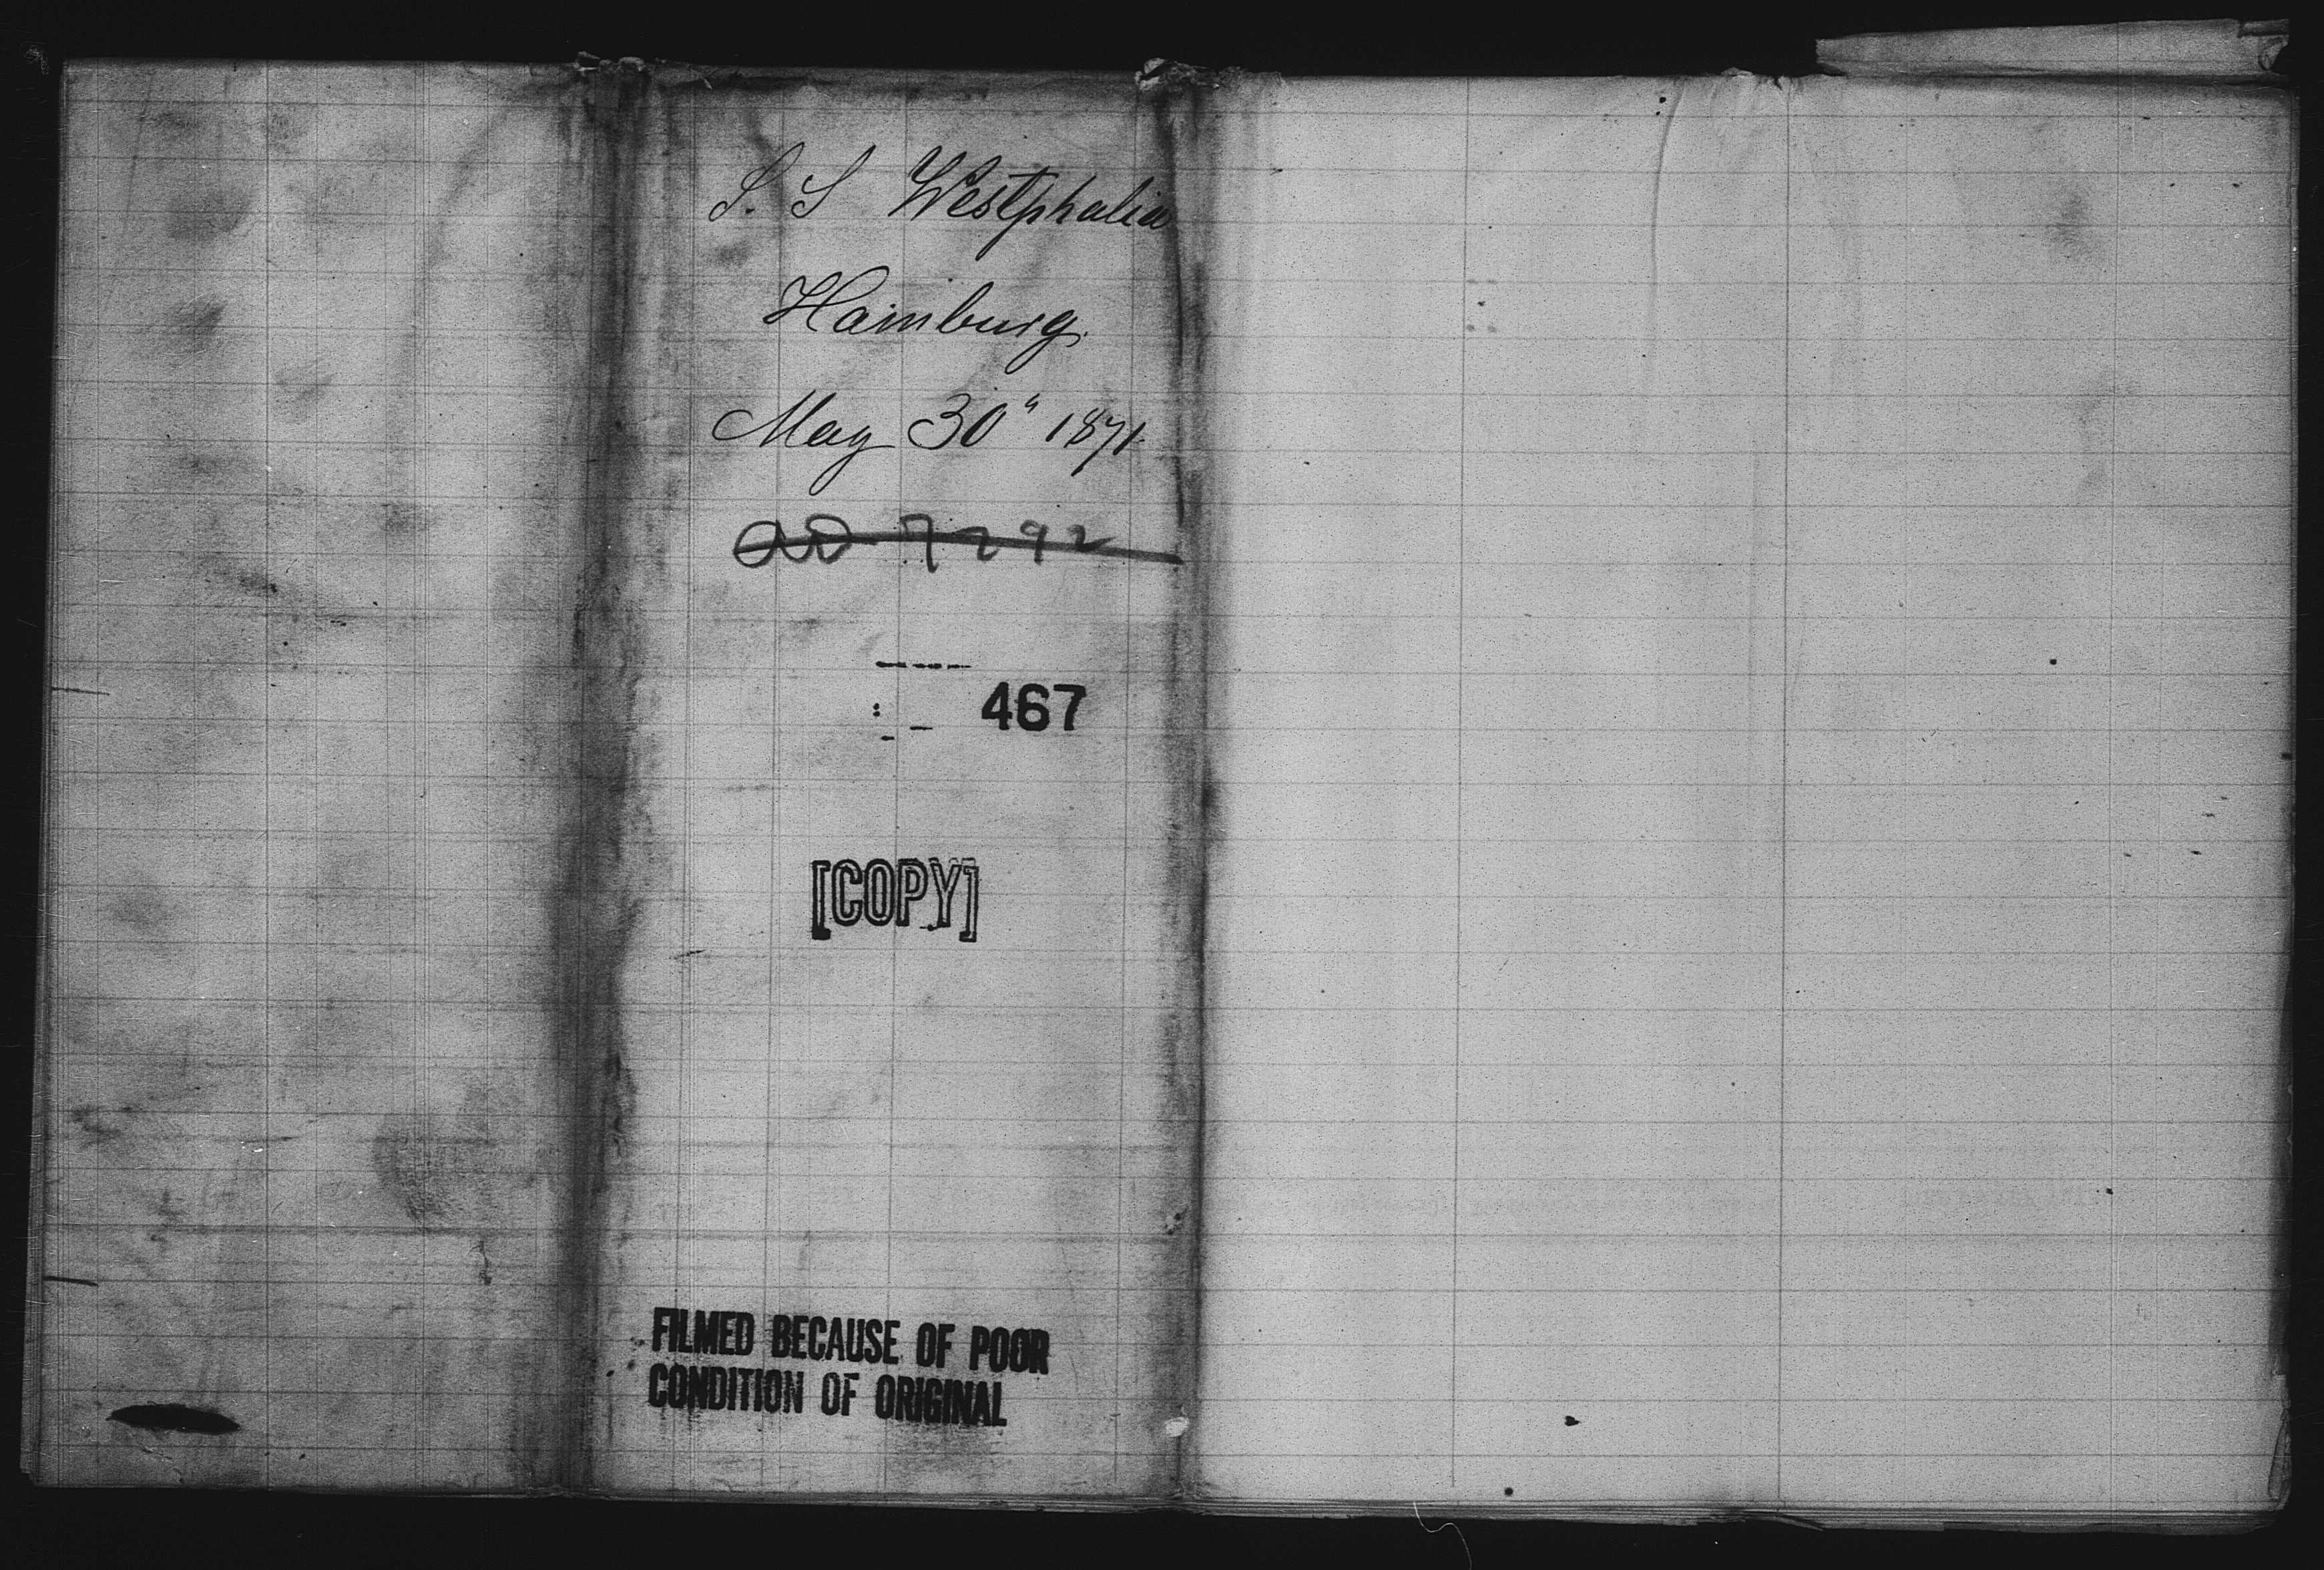 S. S Westphalia
Hamburg.
May 30" 1871.
7292
467
[COPY]
FILMED BECAUSE OF POOR
CONDITION OF ORIGINAL